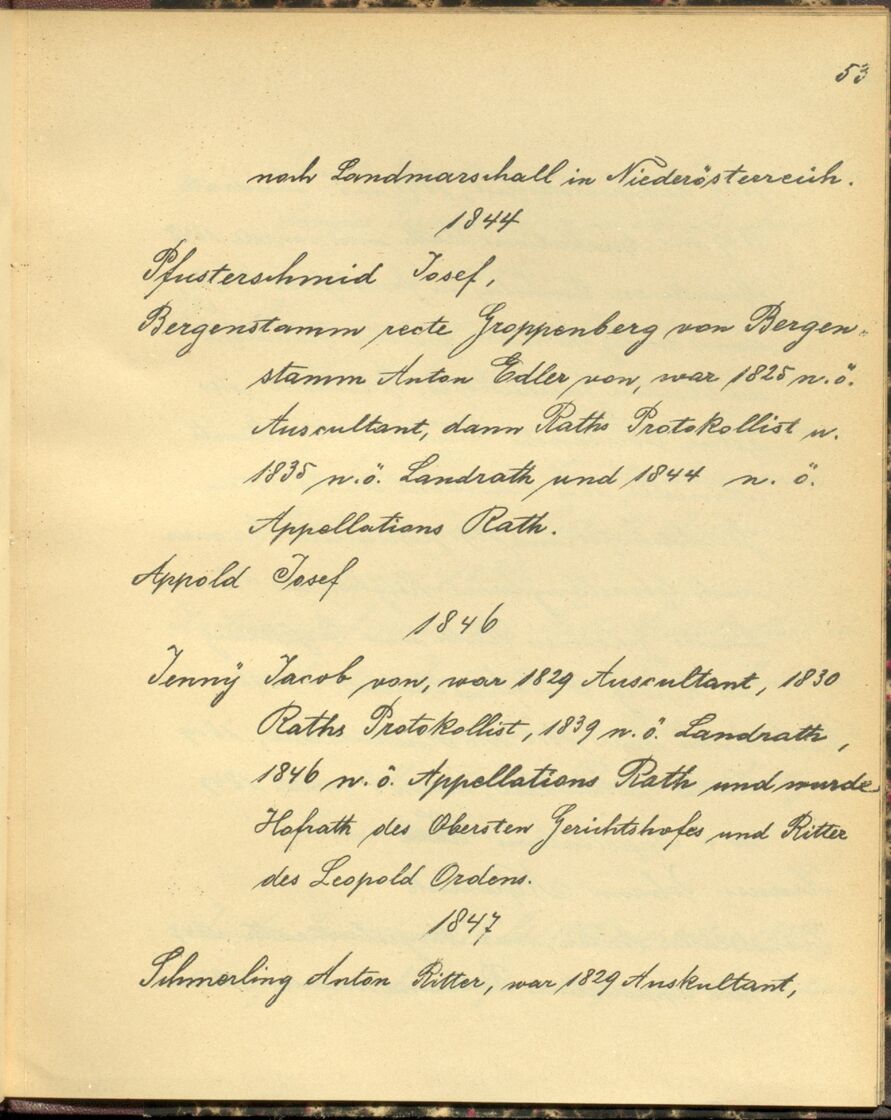 53
noch Landmarschall in Niederösterreich.
1844
Pfusterschmid Josef,
Bergenstamm recte Groppenberg von Bergen-
stamm Anton Edler von, war 1825 n. ö.
Auscultant, dann Raths Protokollist u.
1835 n. ö. Landrath und 1844 n. ö.
Appellations Rath.
Appold Josef
1846
Jenny Jacob von, war 1829 Auscultant, 1830
Raths Protokollist, 1839 n. ö. Landrath,
1846 n. ö. Appellations Rath und wurde
Hofrath des Obersten Gerichtshofes und Ritter
des Leopold Ordens.
1847
Schmerling Anton Ritter, war 1829 Auskultant,